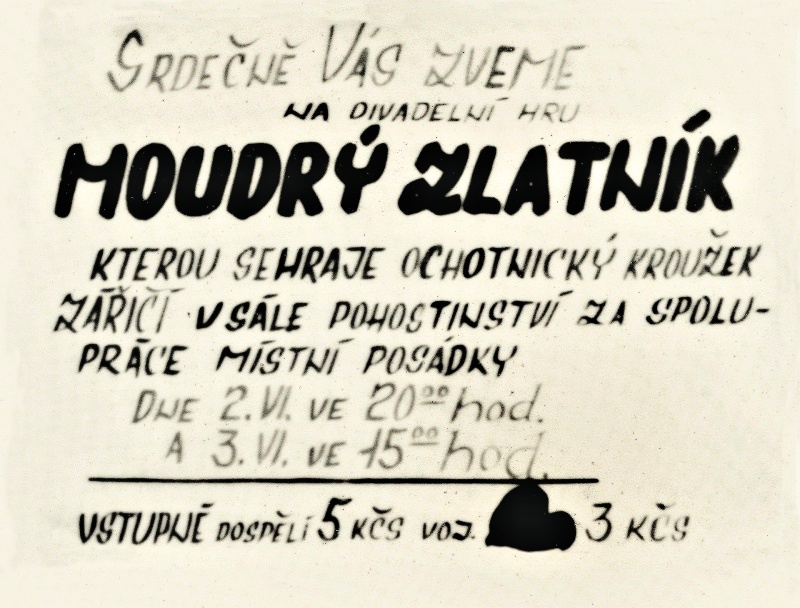 SRDEČNĚ VÁS ZVEME
NA DIVADELNÍ HRU
MOUDRÝ ZLATNÍK
KTEROU SEHRAJE OCHOTNICKÝ KROUŽEK
ZÁŘIČÍ V SÁLE POHOSTINSTVÍ ZA SPOLU-
PRÁCE MÍSTNÍ POSÁDKY
DNE 2.VI. VE 20⁰⁰ hod.
A 3.VI. VE 15⁰⁰ hod.
VSTUPNÉ DOSPĚLÍ 5 KČS VOJ. 3 KČS